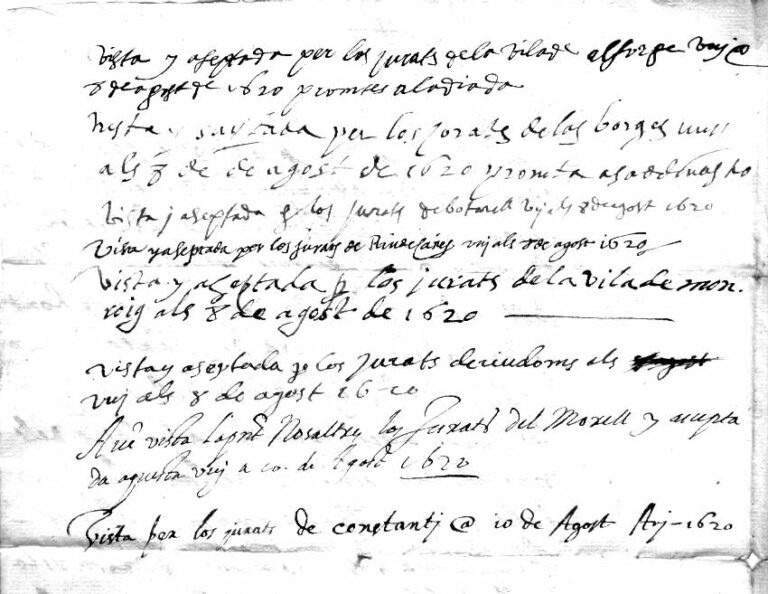 vista y aseptada per los jurats de la vila de alforge vuj @
8 de agost de 1620 promtes a la diada
vista y per los jorats de las borges vuy
als 8 de de agost de 1620 y promta
vista j aseptada per los jurats de botarell vuj als 8 de agost 1620
vista y aseptada per los jurats de Riudecañes vuj als 8 de agost 1620
vista y aseptada p los jurats de la vila de mon.
roig als 8 de agost de 1620
vista y aseptada p los jurats de riudoms als
vuj als 8 de agost 1620
vista la pnt Nosaltres los Jurats del Morell y acepta
da vuy a 10. de Agost 1620
Vista per los jurats de constantj @ 10 de Agost 1620